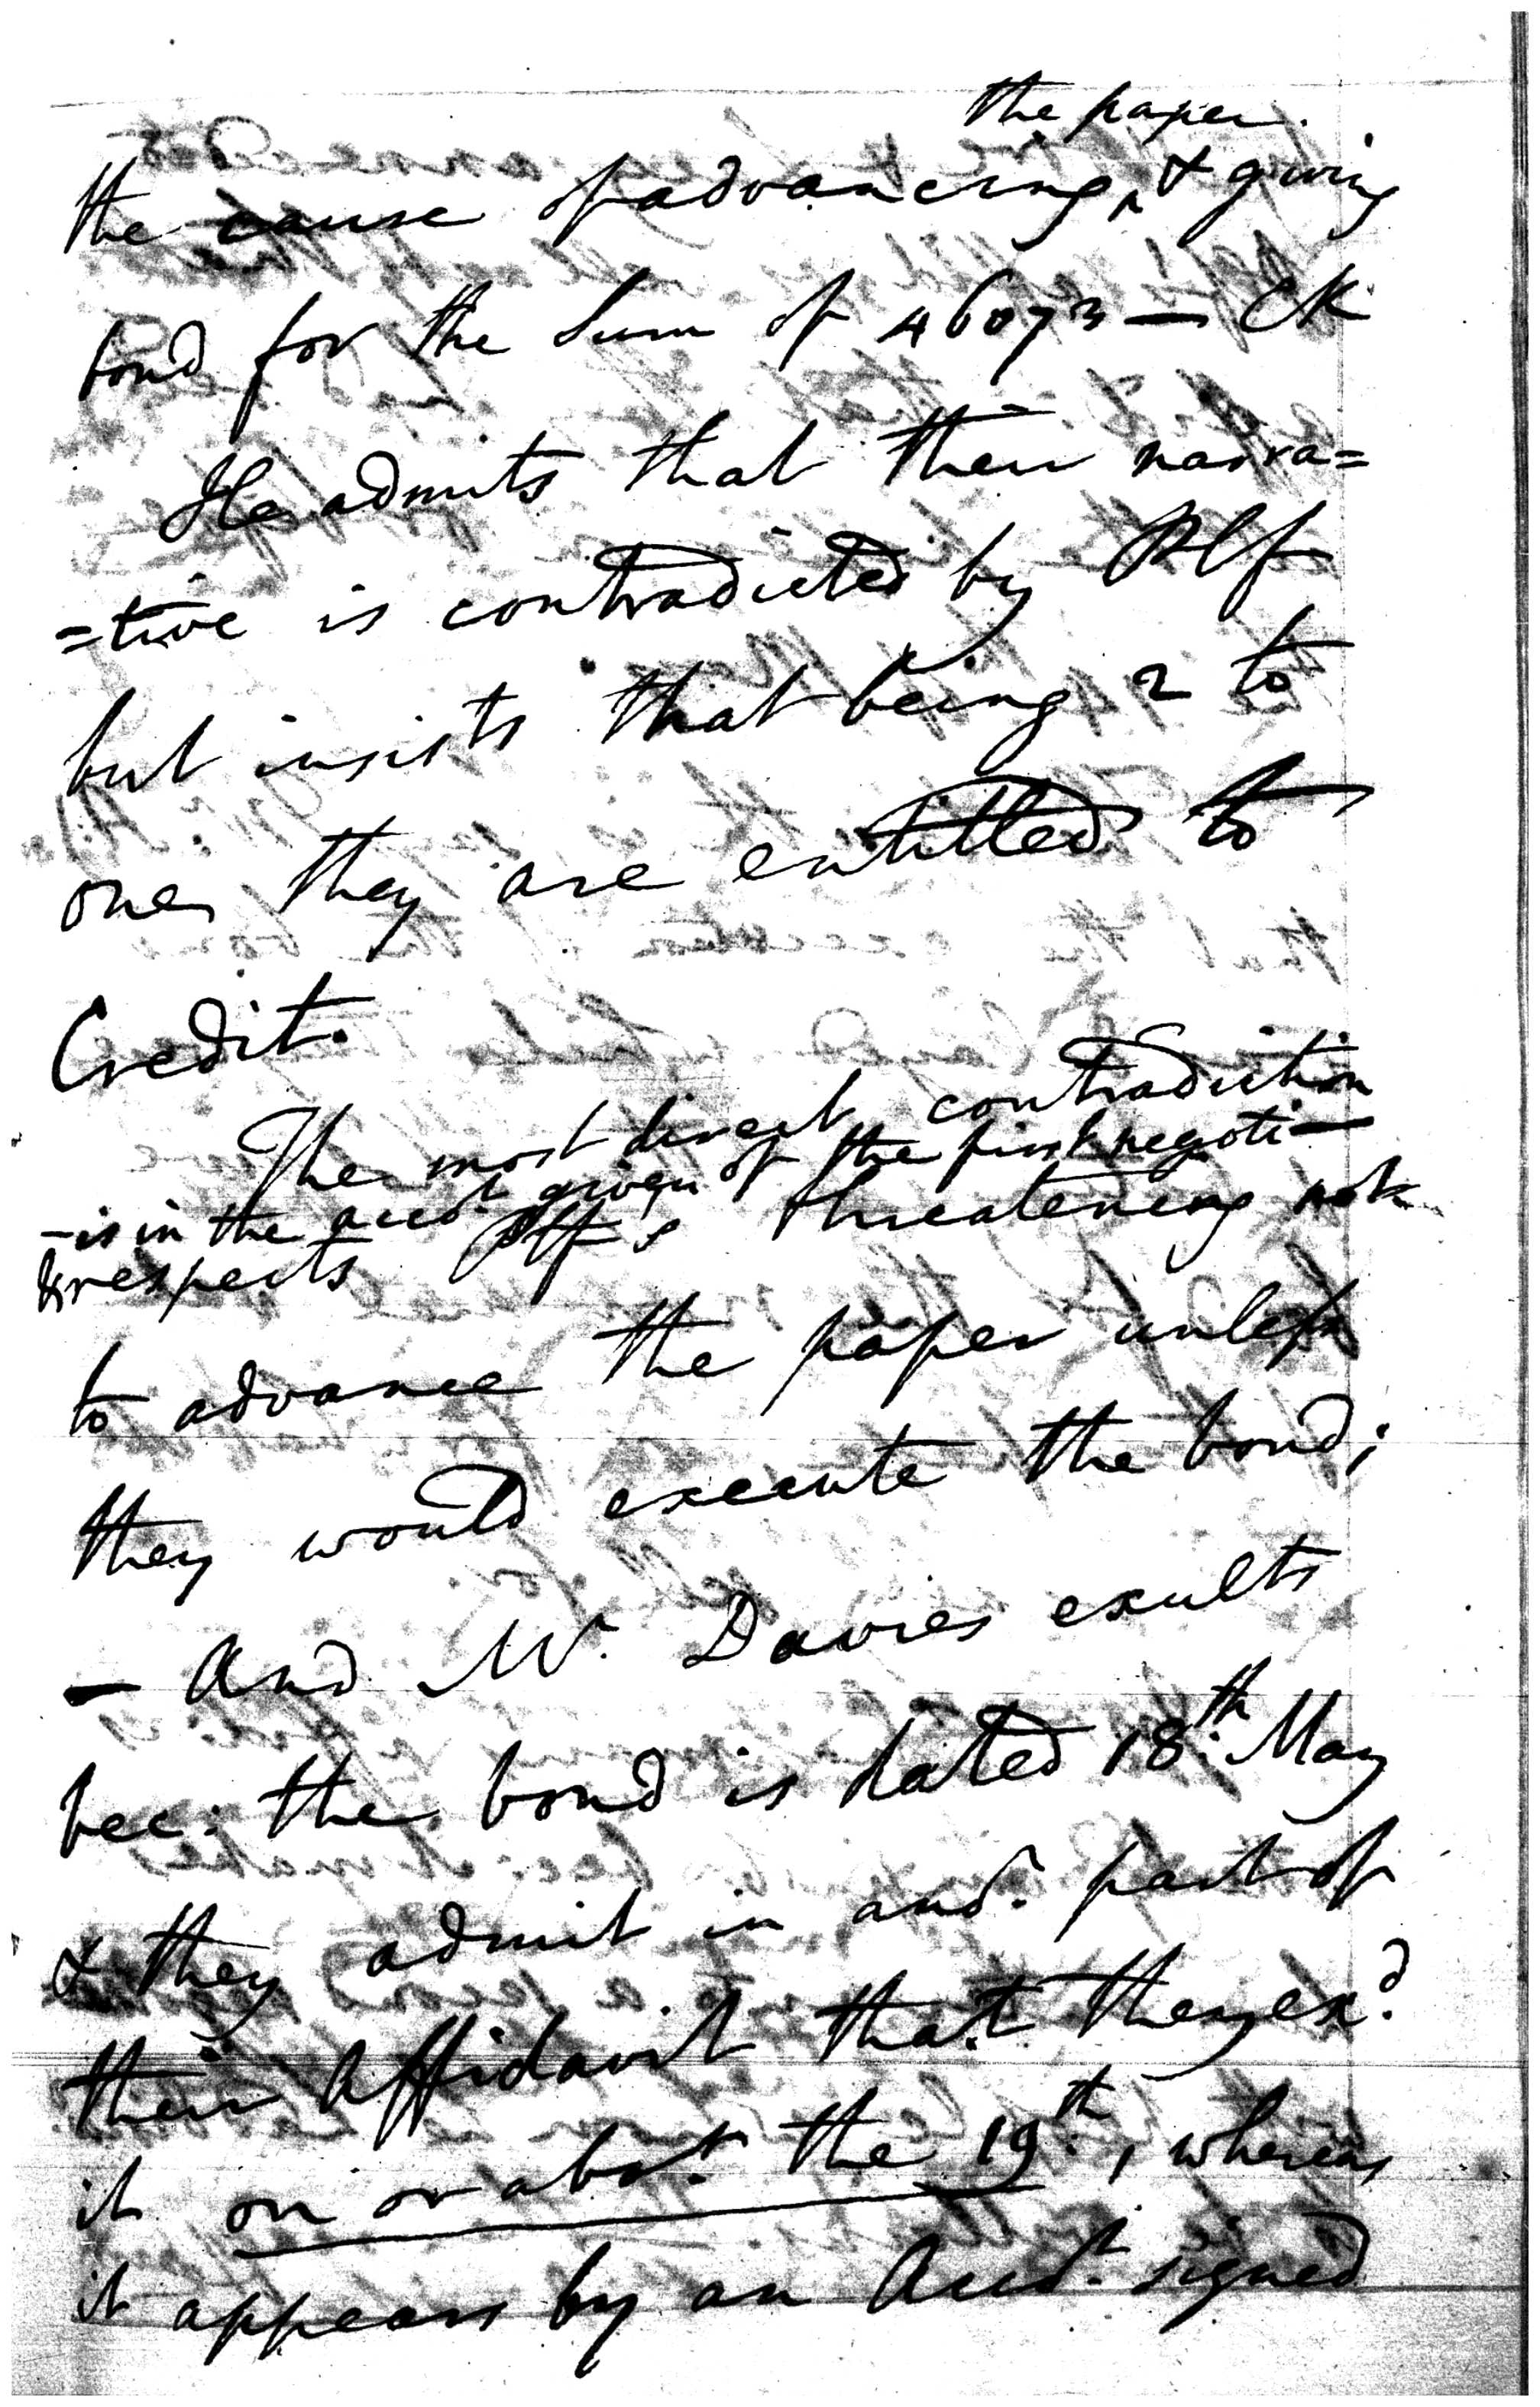 the paper.
the cause of advancing ‸ & giving
bond for the Sum of 46073 —
He admits that their narra=
=tive is contradicted by Plf
but insists that being 2 to
one, they are entitled to
Credit.
The most direct contradiction
— is in the acct. given of the first negoti—
& respects Plff's threatening not
to advance the paper unless
they would execute the bond;
— And Mr. Davies exults
bec: the bond is dated 18th. May
& they admit in anor. part of
their Affidavit that they exd.
it on or abot. the 19th., whereas
it appears by an Acct. signed